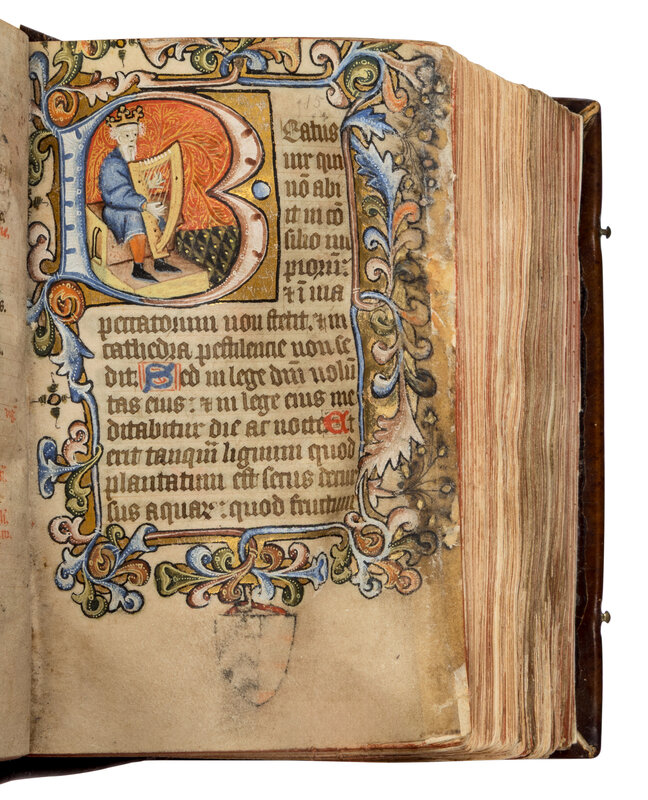 BEatus
uir qui
nō abi
it in cō
silio im
pioꝝ:
⁊ ī uia
peccatorum non stetit, ⁊ in
cathedra pestilencie non se
dit: Sed in lege dnī uolū
tas eius: ⁊ in lege eius me
ditabitur die ac nocte Et
erit tanqm̄ lignum quod
plantatum est secus decur
sus aquaꝝ: quod fructum